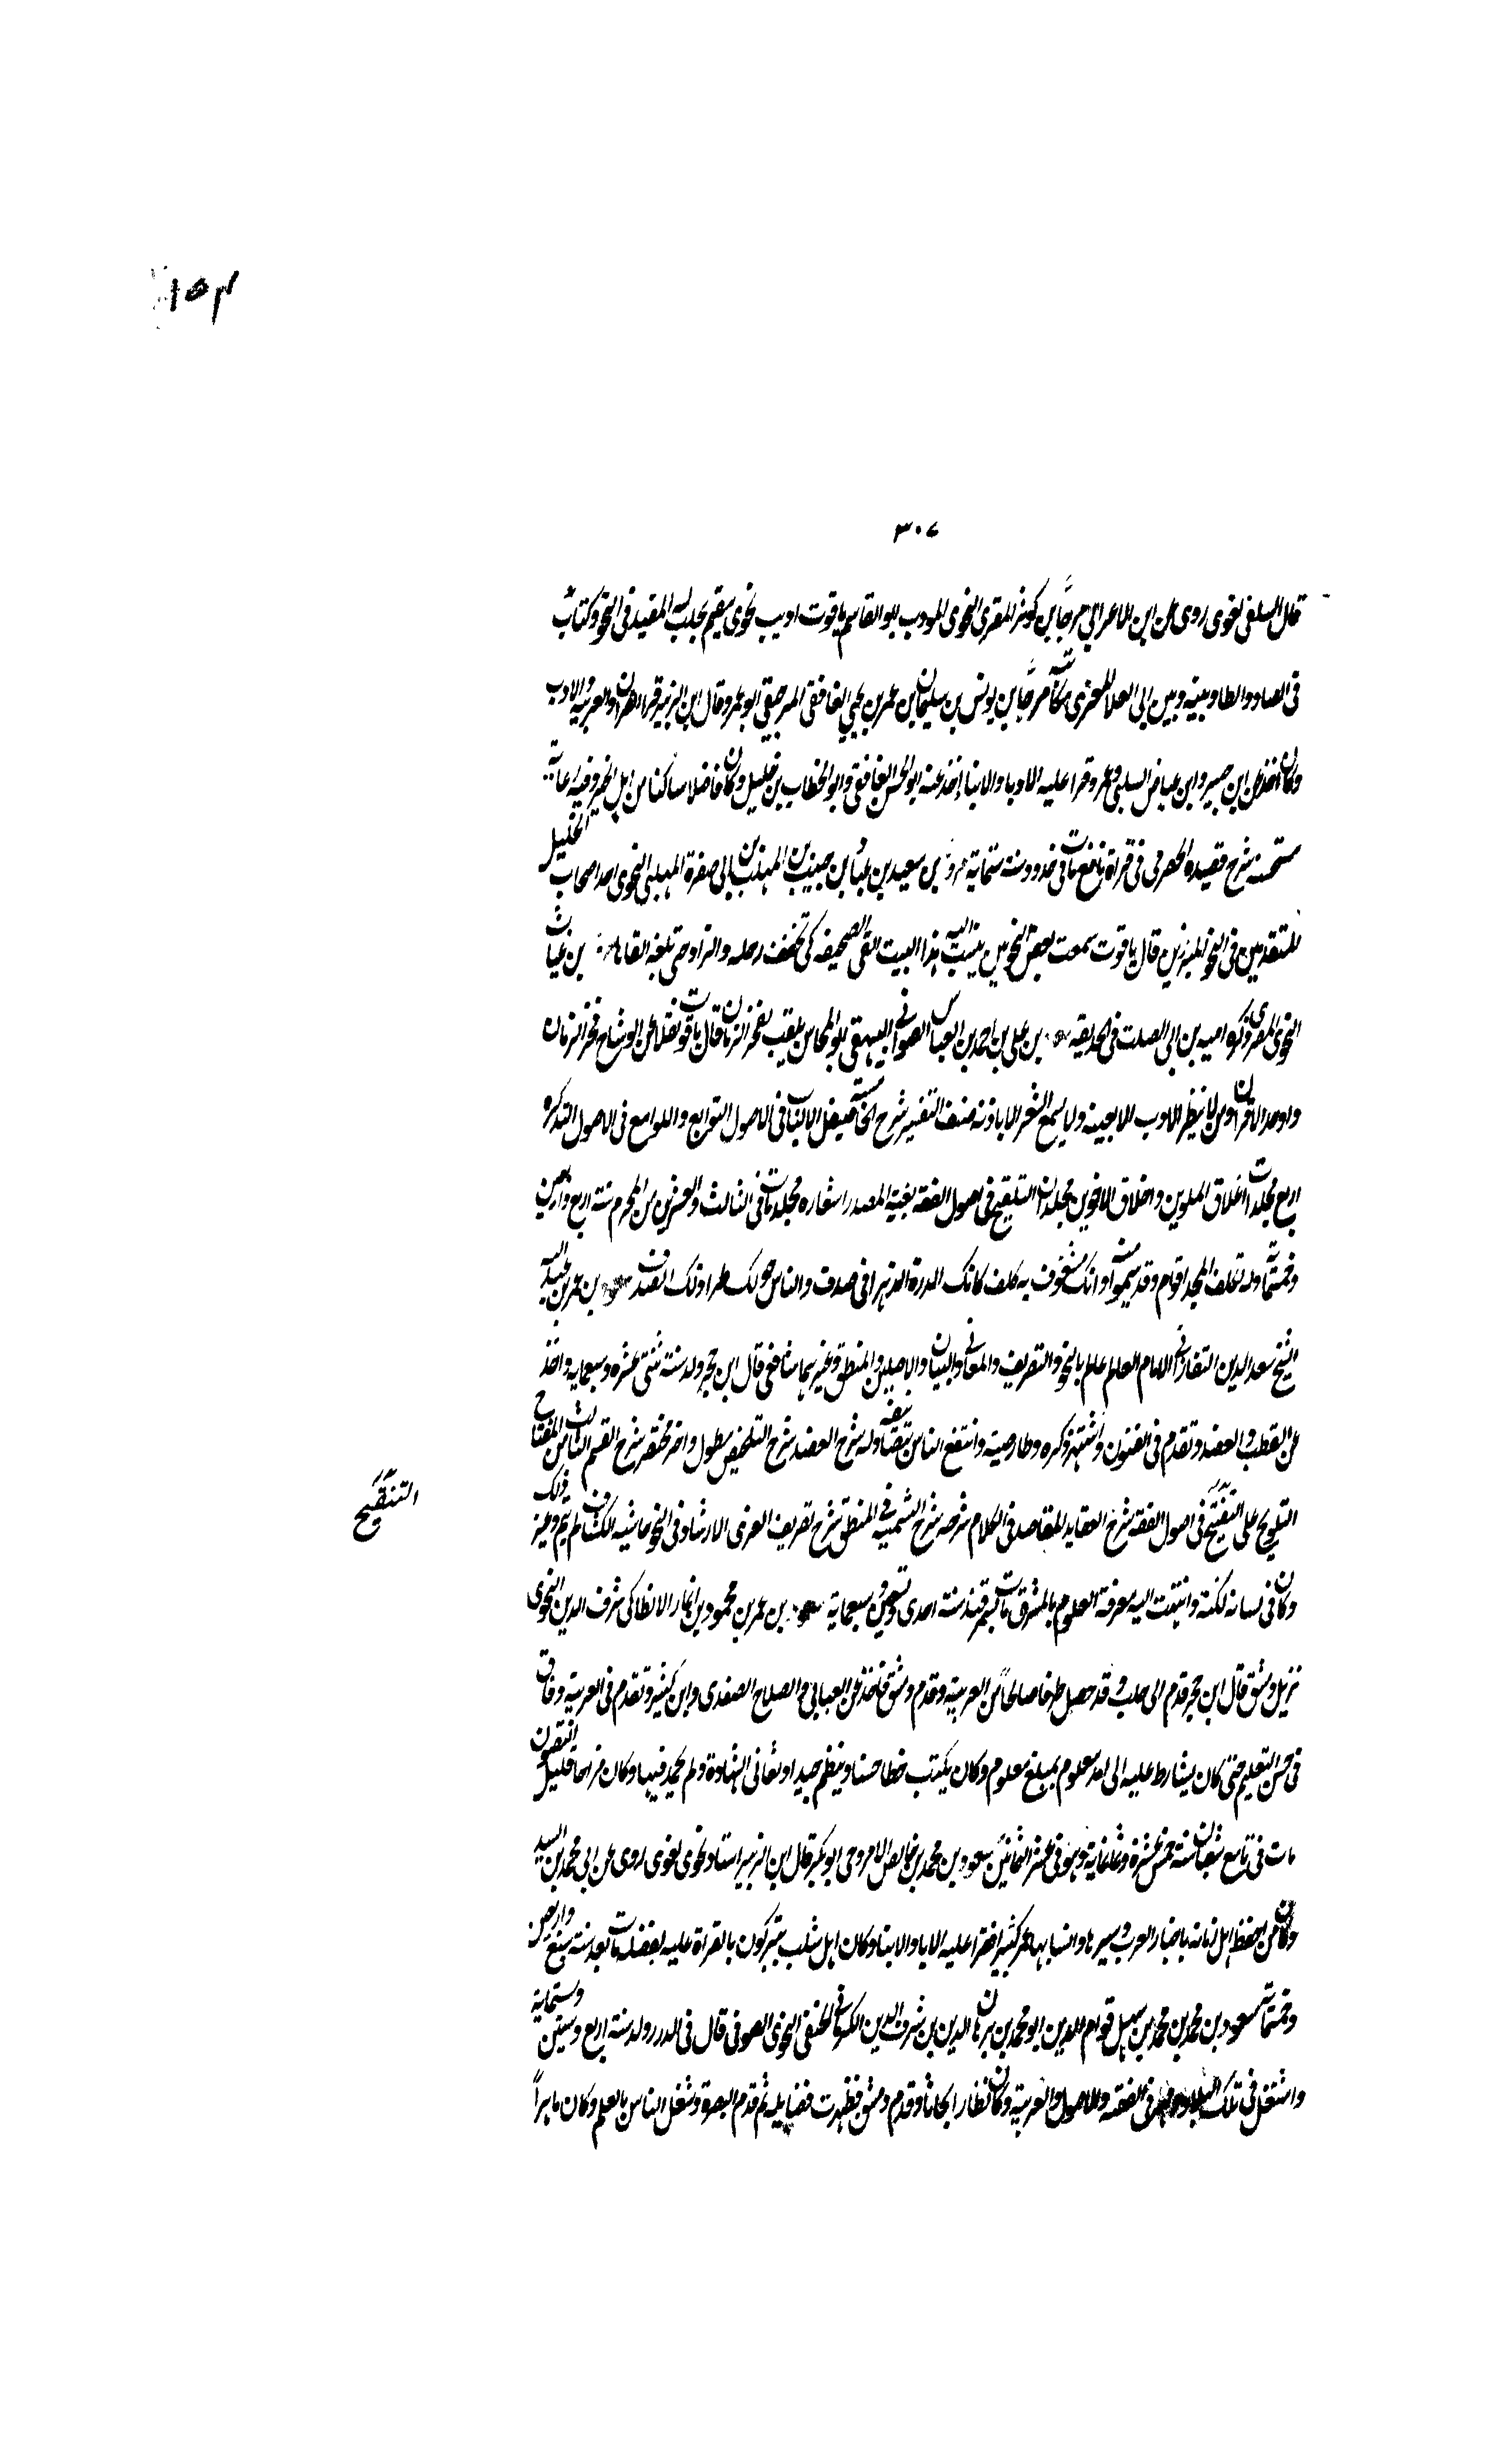 ١٥٣
٣٠٧
قال السلفى لغوى روى عن ابن الاعرابي مرجّا بن كوثر المقرى النحوى المودب ابو القاسم ياقوت اديب نحوى مقيم بحلب له المفيد فى النحو وكتاب
فى الضاد والظا وبينه وبين ابى العلا المعرى مكاتبة مرجّا بن يونس بن سليمان بن عمر بن يحيي الغافقى المرجيقى ابو عمرو قال ابن الزبير قرا القران والعربية والادب
وكان اخذ عن ابن خير وابن عياض السلبى وعمر وقرا عليه الابا والابناء اخذ عنه ابو الحسن الغافقى وابو الخطاب بن خليل وكان فاضلا ساكنا من اهل الخير وفيه دعابة
مستحسنة شرح قصيدة الحصرى فى قراة نافع مات فى حدود سنة ستماية بن سعيد بن عباد بن حبيب بن المهلب بن ابى صفرة المهلبى النحوى احد اصحاب الخليل
المتقدمين فى النحو المبرزين قال ياقوت سمعت بعض النحويين ينسب اليه هذا البيت القى الصحيفه كى يخفف رحله والزاد حتى نعله القاها بن غياث
النحوى المصرى ذكره اميه بن ابى الصلت فى الحديقه بن على بن احمد بن العباس الصوانى البيهقى ابو المحاسن يلقب بفخر الزمان قال ياقوت نقلا عن الوشاح فخر الزمان
واوحد الاقران ومن لا ينظر الادب الا بعينه ولا يسمع الشعر الا باذنه صنف التفسير شرح الحماسة صيقل الالباب فى الاصول التوابع واللوامع فى الاصول التذكرة
اربع مجلدات اغلاق الملوين واخلاق الاخوين مجلدان التلقيح فى اصول الفقه بغية المصدر اشعاره مجلد مات فى الثالث والعشرين من المحرم سنة اربع واربعين
وخمسماية وله تكلف المجد اقوام وقد سيموا منه وانك مشغوف به كلف كانك الدرة الزهرا فى صدف والناس حولك طرا ذلك الصدف بن عمر بن عبد الله
الشيخ سعد الدين التفتازانى الامام العالم علم بالنحو والتصريف والمعانى والبيان والاصلين والمنطق وغيرها شافعى قال ابن حجر ولد سنة ثنتى عشره وسبعمايه واخذ
عن القطب والعضد وتقدم فى الفنون واشتهر ذكره وطار صيته وانتفع الناس بتصانيفه وله شرح العضد شرح التلخيص مطول واخر مختصر شرح القسم الثالث من المفتاح
التلويح على التنقيح فى اصول الفقه شرح العقايد المقاصد فى الكلام شرحه شرح الشمسية فى المنطق شرح تصريف العزى الارشاد فى النحو حاشيه الكشاف لم يتم وغير ذلك
التنقيح
وكان فى لسانه لكنة وانتهت اليه معرفة العلوم بالمشرق مات بسمرقند سنة احدى وتسعين وسبعماية بن عمر بن محمود بن انمار الانطاكى شرف الدين النحوى
نزيل دمشق قال ابن حجر قدم الى حلب وقد حصل طرفا صالحاً من العربية وقدم دمشق فاخذ عن العبابى والصلاح الصفدى وابن كثير وتقدم فى العربية وفاق
فى حسن التعليم حتى كان يشارط عليه الى امد معلوم بمبلغ معلوم وكان يكتب خطا حسنا وينظم جيدا وتعانى الشهادة ولم يحمد فيها وكان مزاحا قليل التصون
مات فى تاسع شعبان سنة خمس عشرة وثمانماية وهو فى عشر الثمانين مسعود بن محمد بن خالص الامروحى ابو بكر قال ابن الزبير استاد نحوى لغوى روى عن ابى محمد بن السيد
وكان من احفظ اهل زمانه باخبار العرب وسيرها وانسابها عمر كثيرا فقرا عليه الابا والابنا وكان اهل شلب يتبركون بالقراة عليه لفضله مات بعد سنة سبع واربعين
وخمسماية مسعود بن محمد بن محمد بن سهل قوام الدين ابو محمد بن برهان الدين بن شرف الدين الكرمانى الحنفى النحوى الصوفى قال فى الدرر ولد سنة اربع وستين وستماية
واشتغل فى تلك البلاد ومهر فى الفقه والاصول والعربية وكان نظارا بحاثا وقدم دمشق فظهرت فضايله ثم قدم البصرة وشغل الناس بالعلم وكان ماهراً